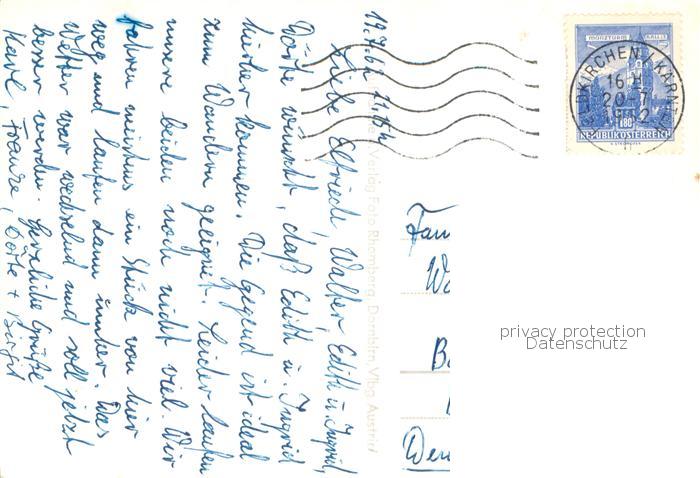 19.7.62 21.15 h
Liebe Elfriede, Walter, Edith u. Ingrid,
Dörte wünscht, daß Edith u. Ingrid
hierher kommen. Die Gegend ist ideal
zum Wandern geeignet. Leider laufen
unsere beiden noch nicht viel. Wir
fahren meistens ein Stück von hier
weg und laufen dann umher. Das
Wetter war wechselnd und soll jetzt
besser werden. Herzliche Grüße
Karl, Dörte + Birgit
Verlag Foto Rhomberg, Dornbirn, Vlbg. Austria
MÜNZTURM HALL I.T.
S 1.80
REPUBLIK ÖSTERREICH
KIRCHEN KÄRN
16 H
20-7
Fam
W
B
privacy protection
Datenschutz